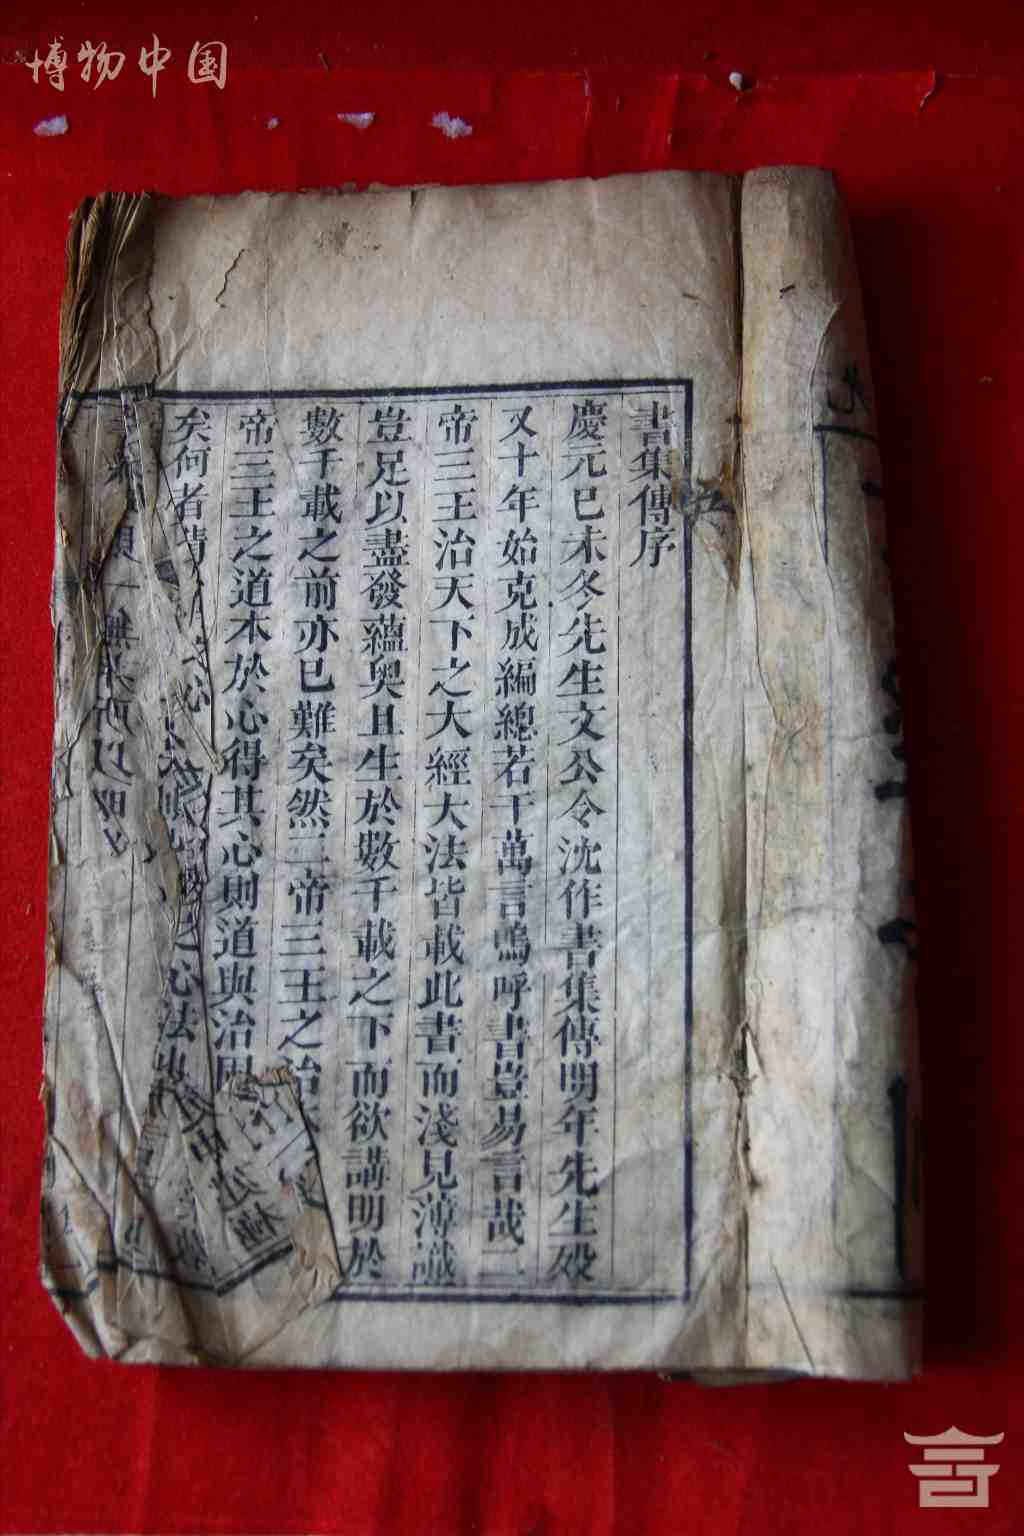 博物中国
書集傳序
慶元已未冬先生文公令沈作書集傳明年先生歿
又十年始克成編總若干萬言嗚呼書豈易言哉二
帝三王治天下之大經大法皆載此書而淺見薄識
豈足以盡發蘊奥且生於數千載之下而欲講明於
數千載之前亦已難矣然二帝三王之治本
帝三王之道本於心得其心則道與治固
矣何者精
心法也